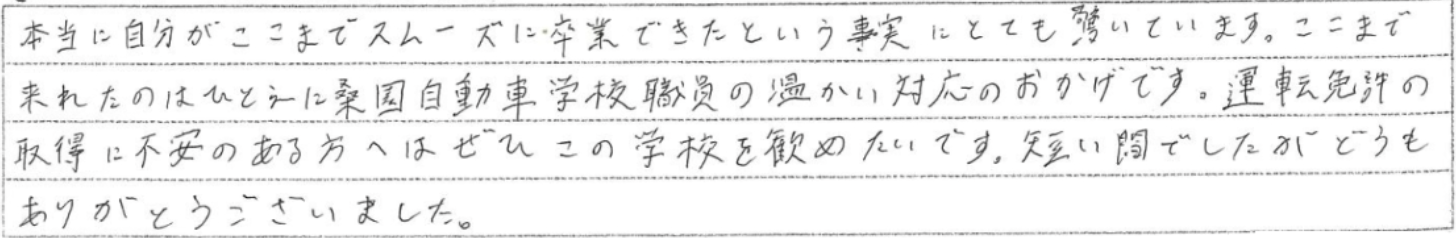 本当に自分がここまでスムーズに卒業できたという事実にとても驚いています。ここまで
来れたのはひとえに桑園自動車学校職員の温かい対応のおかげです。運転免許の
取得に不安のある方へはぜひこの学校を歓めたいです。短い間でしたがどうも
ありがとうございました。